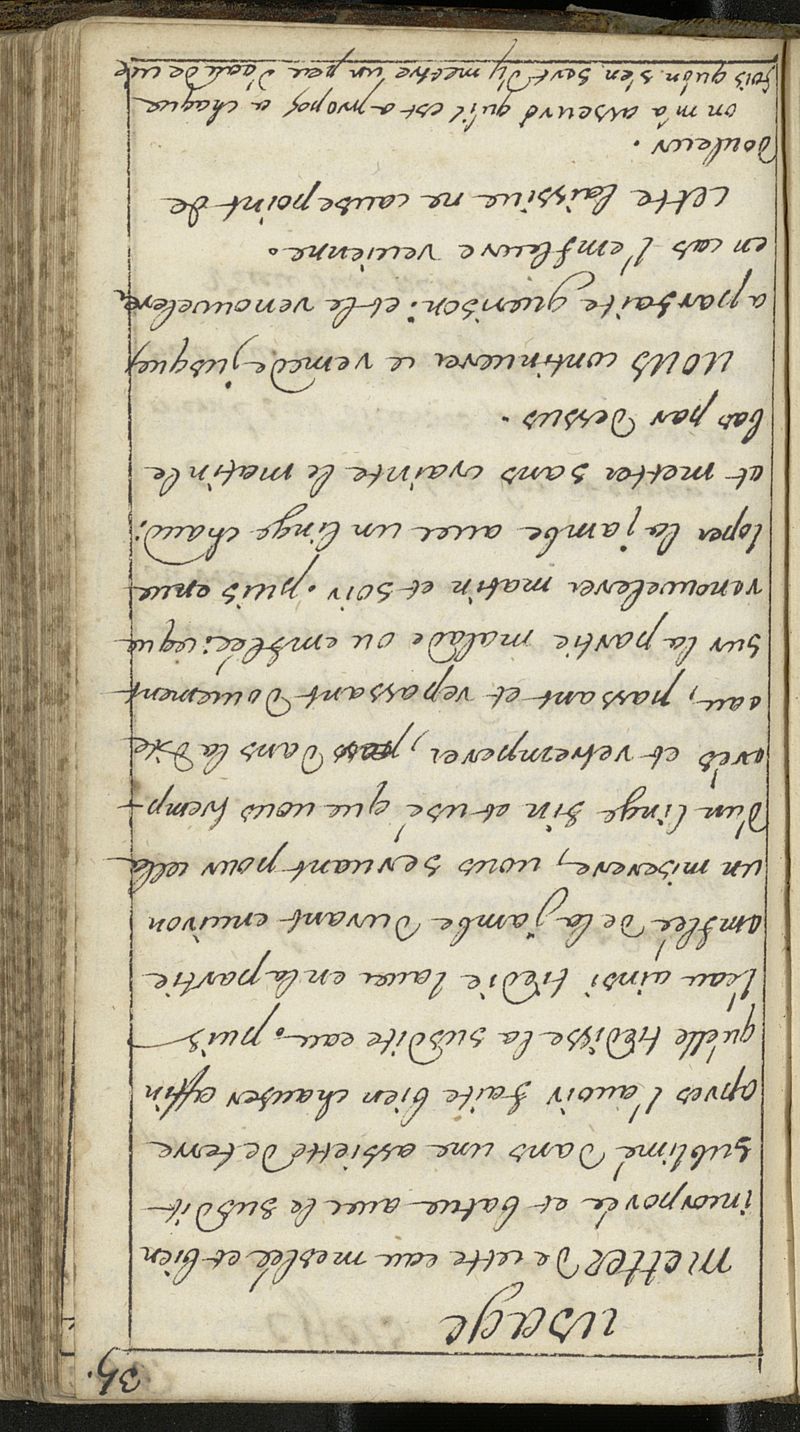 35.
usage
Mettez de cette eau meslée et bien
incorporée et batue avec le susdit
sublimé dans une assiette de terre
apres l'avoir faite bien chaufer affin
qu'elle tiedisse la susdite eau. puis
l'eau ainsi tiedie lavez en la partie
amflée de la jambe durant environ
un miserere, vous servant pour cella
d'un linge fin et usé que vous tremp-
erés et retremperez, dans la dite
eau, passant et repassant doucement
sur la partie malade ou emflée: ceque
renouvelerez matin et soir. puis enve
loper la jambe avec un linge chaud:
et metter sans crainte le matin le
bas par dessus.
vous continuerez ce remede jusques
a parfaite guerison: et le renouvelerez
en cas l'emfleure revienne.
cette laissive ne cause point de
douleur.
on m'a asseuré qu'il est a propos a chaque
fois qu'on s'en sert d'y mettre un peu d'eau de vie